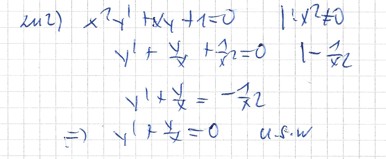 zu 2) x²y' + xy + 1 = 0 |:x² ≠ 0
y' + y/x + 1/x² = 0 |- 1/x²
y' + y/x = - 1/x²
=> y' + y/x = 0 u.s.w